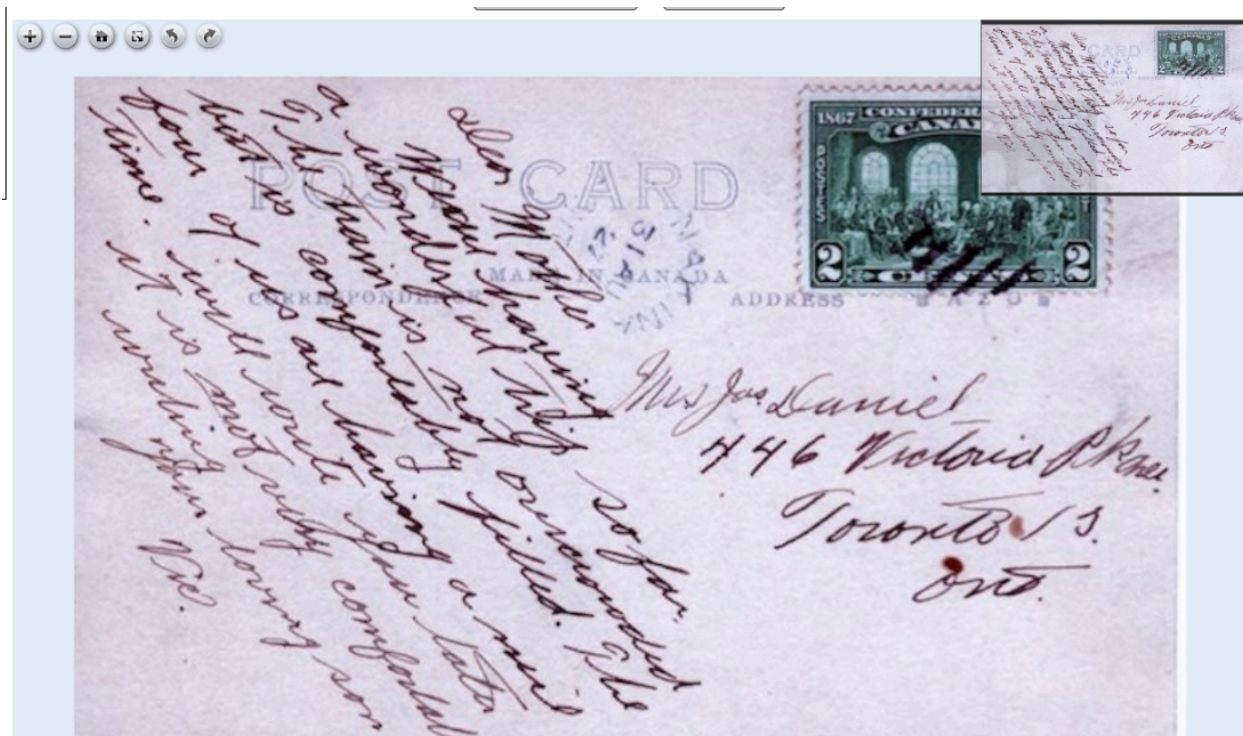 POST CARD
MADE IN CANADA
CORRESPONDENCE
ADDRESS
1867 CONFEDER
CANA
POSTES
2 CENTS 2
Dear Mother
Have having
a wonderful trip so far.
The train is not overcrowded
but is comfortably filled. The
four of us are having a nice
time. will write you later
it is not very comfortable
writing
your loving son
Vic.
Mrs Jas Daniel
446 Victoria Pk Ave.
Toronto 13.
Ont.